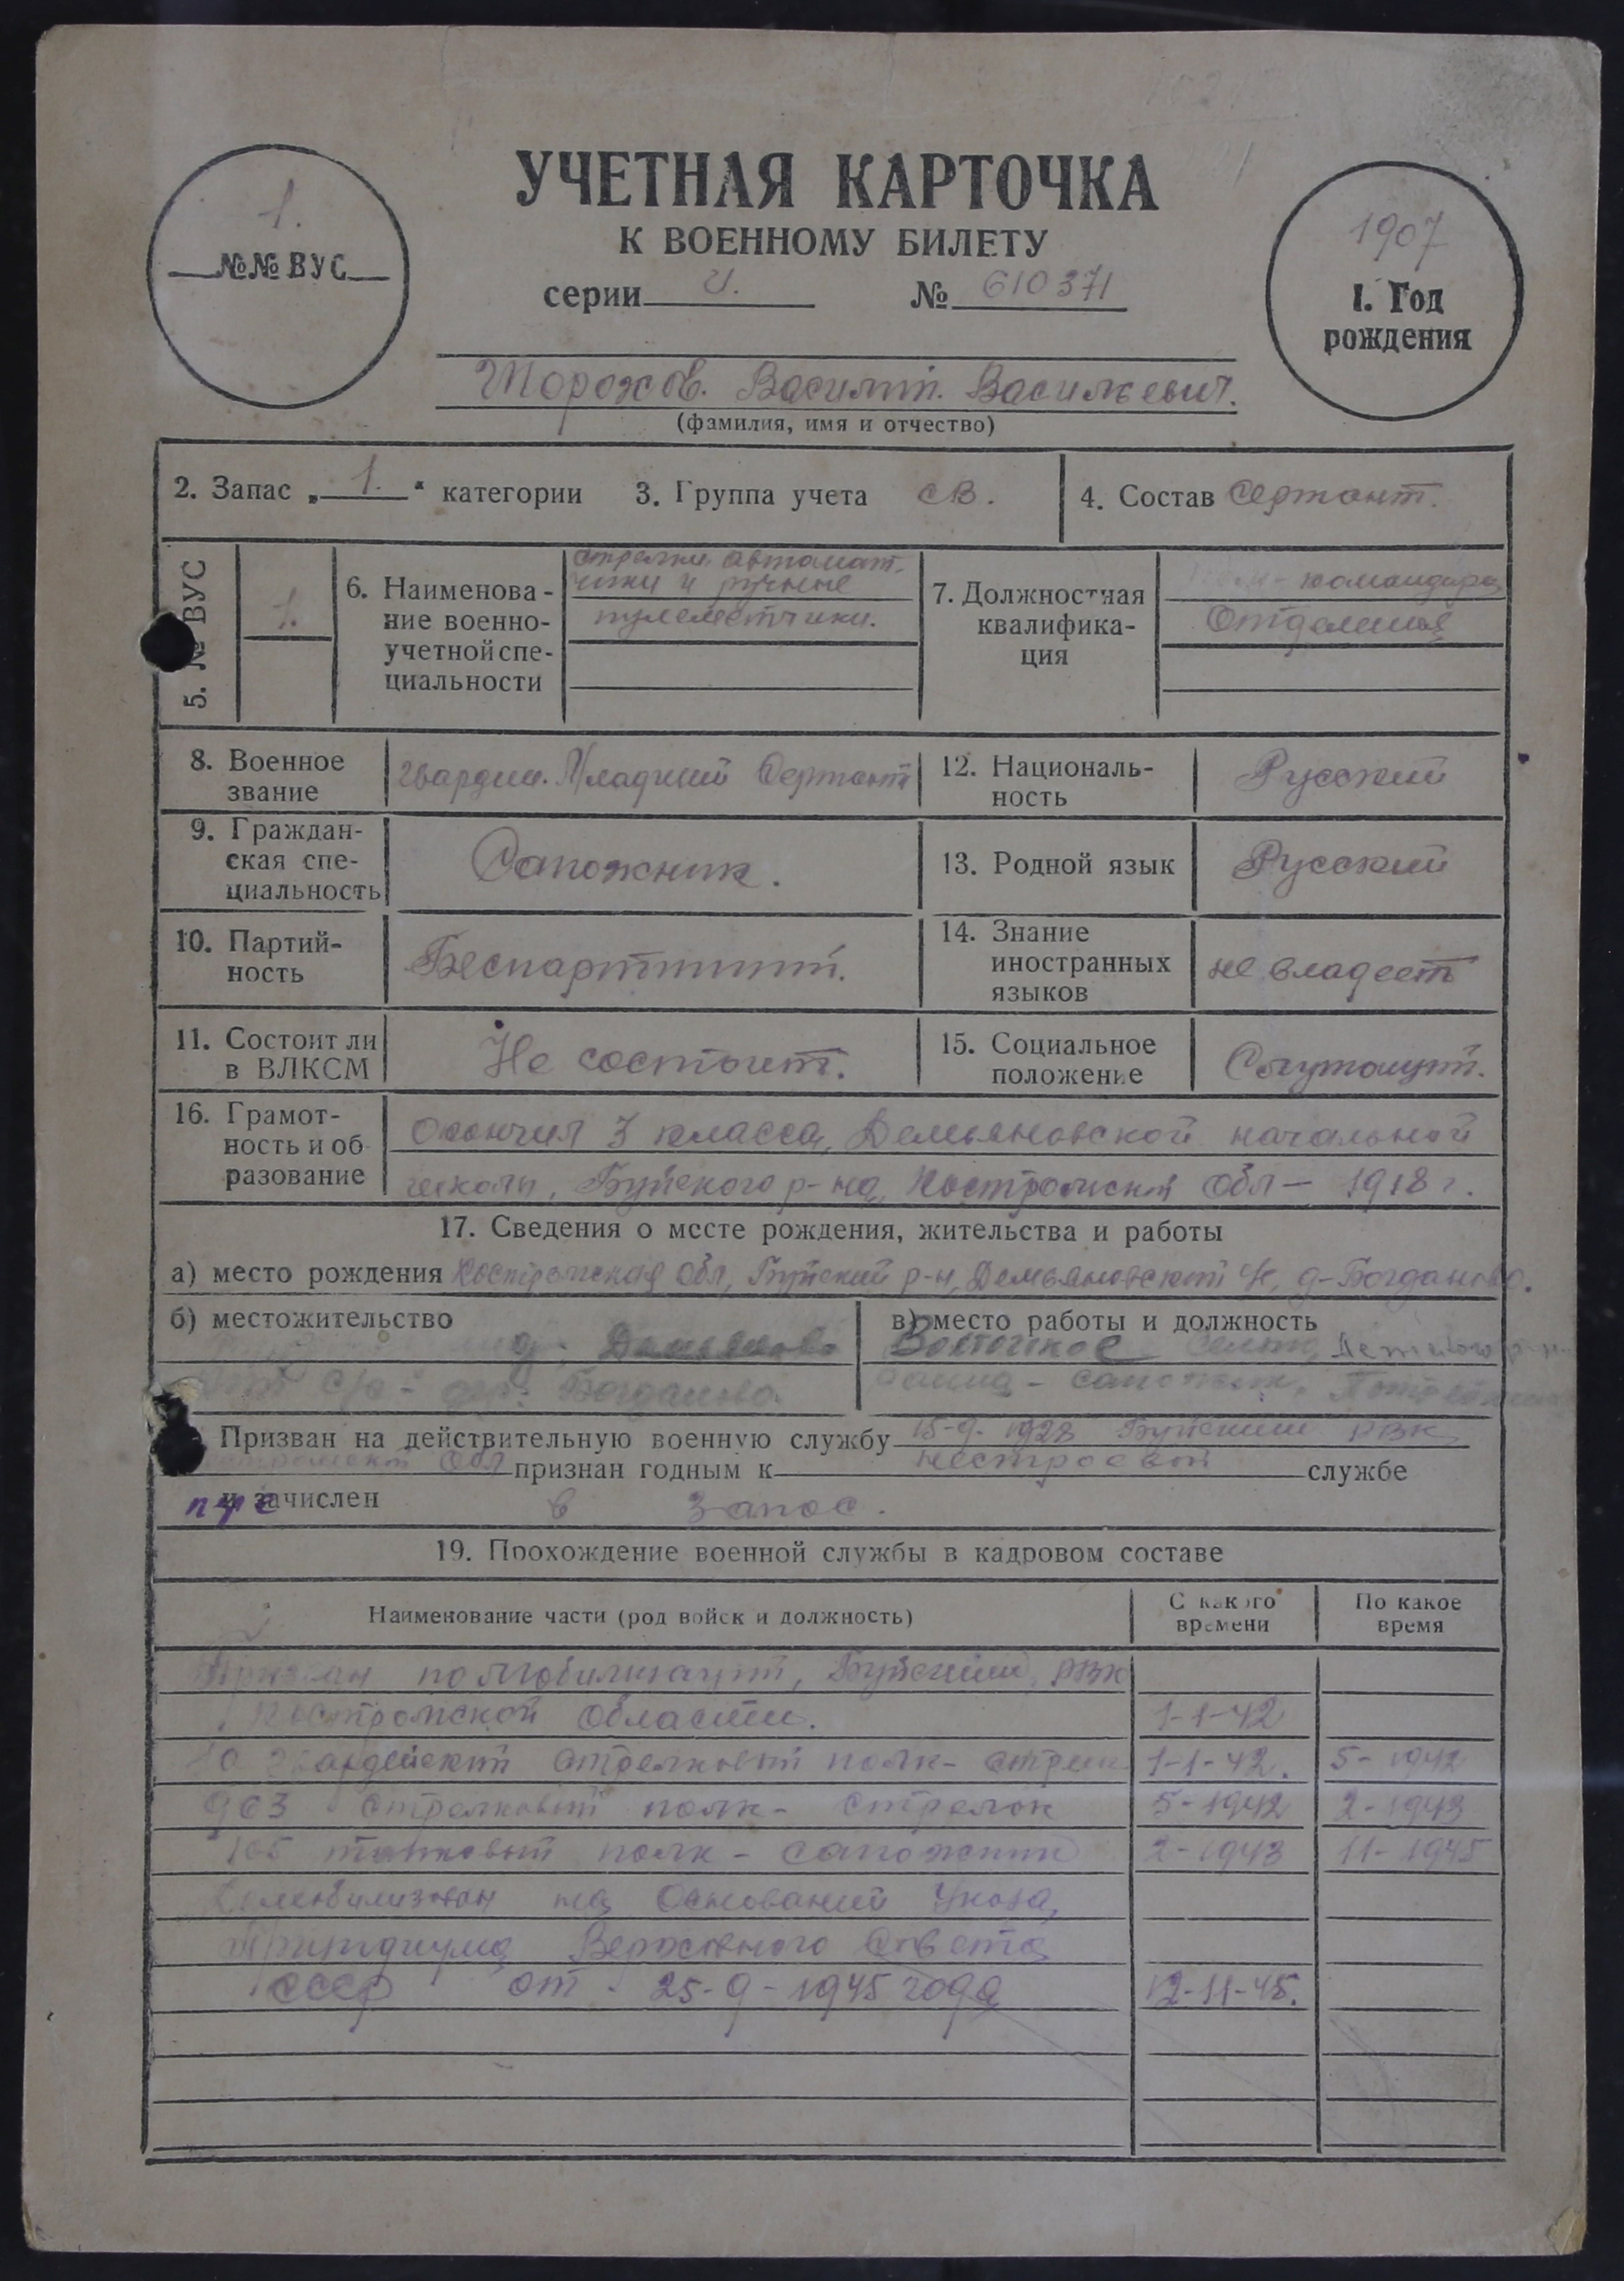 УЧЕТНАЯ КАРТОЧКА
К ВОЕННОМУ БИЛЕТУ
серии И. № 610371
1.
№№ ВУС
1907
1. Год
рождения
Василий. Васильевич.
(фамилия, имя и отчество)
2. Запас „1.“ категории 3. Группа учета СВ. 4. Состав Сержант.
5. № ВУС 1.
6. Наименова-
ние военно-
учетной спе-
циальности
стрелки автомат.
чики и ручные
пулеметчики.
7. Должностная
квалифика-
ция
командира
Отделения
8. Военное
звание
гвардии. Младший Сержант
12. Националь-
ность
Русский
9. Граждан-
ская спе-
циальность
Сапожник.
13. Родной язык Русский
10. Партий-
ность
Беспартийный.
14. Знание
иностранных
языков
не владеет
11. Состоит ли
в ВЛКСМ
Не состоит.
15. Социальное
положение
16. Грамот-
ность и об
разование
Окончил 3 класса, Демьяновской начальной
школы, Буйского р-на, Костромской Обл — 1918 г.
17. Сведения о месте рождения, жительства и работы
а) место рождения Костромская Обл, Буйский р-н, Демьяновский с/с, д-Богданово.
б) местожительство
д. Демьяново
с/с - дер. Богданово.
в) место работы и должность
Восточное
сапожник,
Призван на действительную военную службу 15-9-1928 Буйским РВК
Обл признан годным к нестроевой службе
и зачислен в запас.
19. Прохождение военной службы в кадровом составе
Наименование части (род войск и должность)
С какого
времени
По какое
время
Призван по мобилизации, Буйским, РВК
Костромской области. 1-1-42
гвардейский стрелковый полк - стрелок 1-1-42. 5-1942
963 стрелковый полк - стрелок 5-1942 2-1943
105 танковый полк - сапожник 2-1943 11-1945
Демобилизован на Основании Указа,
Президиума Верховного Совета
СССР от 25-9-1945 года 12-11-45.